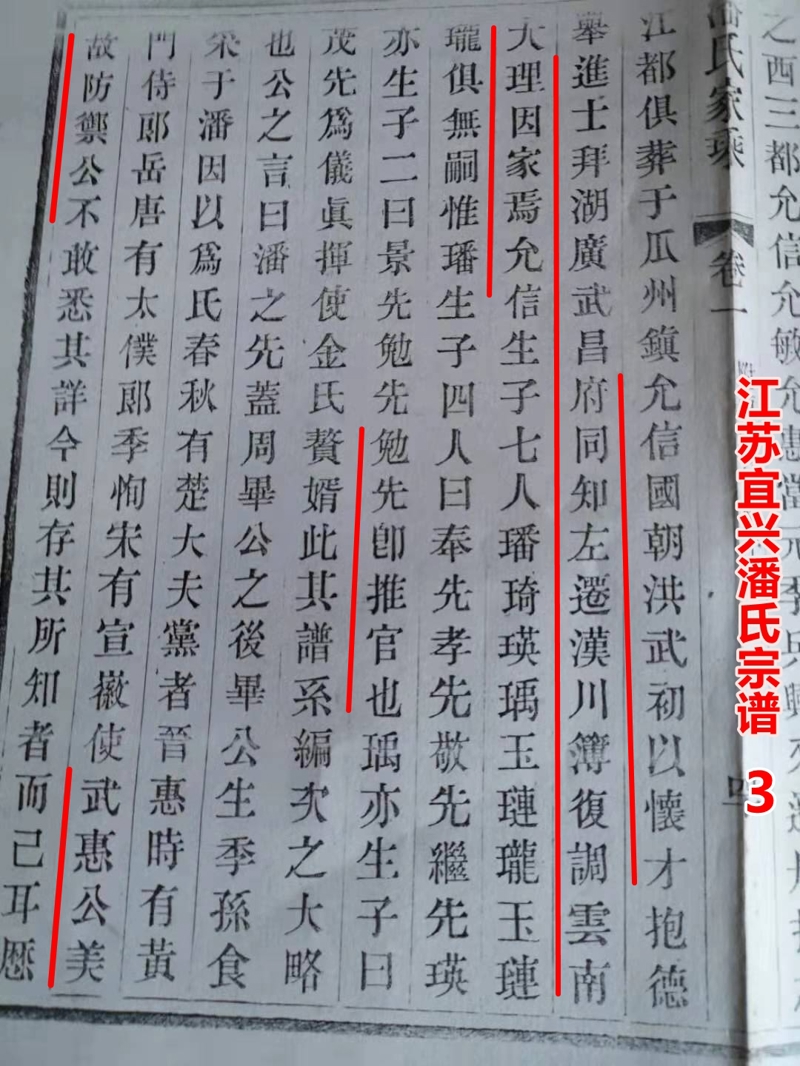 之西三都允信允敏允惠當元季兵興
潘氏家乘 卷一
江都俱葬于瓜州鎮允信國朝洪武初以懷才抱德
舉進士拜湖廣武昌府同知左遷漢川簿復調雲南
大理因家焉允信生子七人璠琦瑛瑀玉璉瓏玉璉
瓏俱無嗣惟璠生子四人曰奉先孝先敬先繼先瑛
亦生子二曰景先勉先勉先卽推官也瑀亦生子曰
茂先爲儀眞揮使金氏贅婿此其譜系編次之大略
也公之言曰潘之先蓋周畢公之後畢公生季孫食
采于潘因以爲氏春秋有楚大夫黨者晉惠時有黃
門侍郎岳唐有太僕郎季恂宋有宣徽使武惠公美
故防禦公不敢悉其詳今則存其所知者而己耳歷
江苏宜兴潘氏宗谱 3